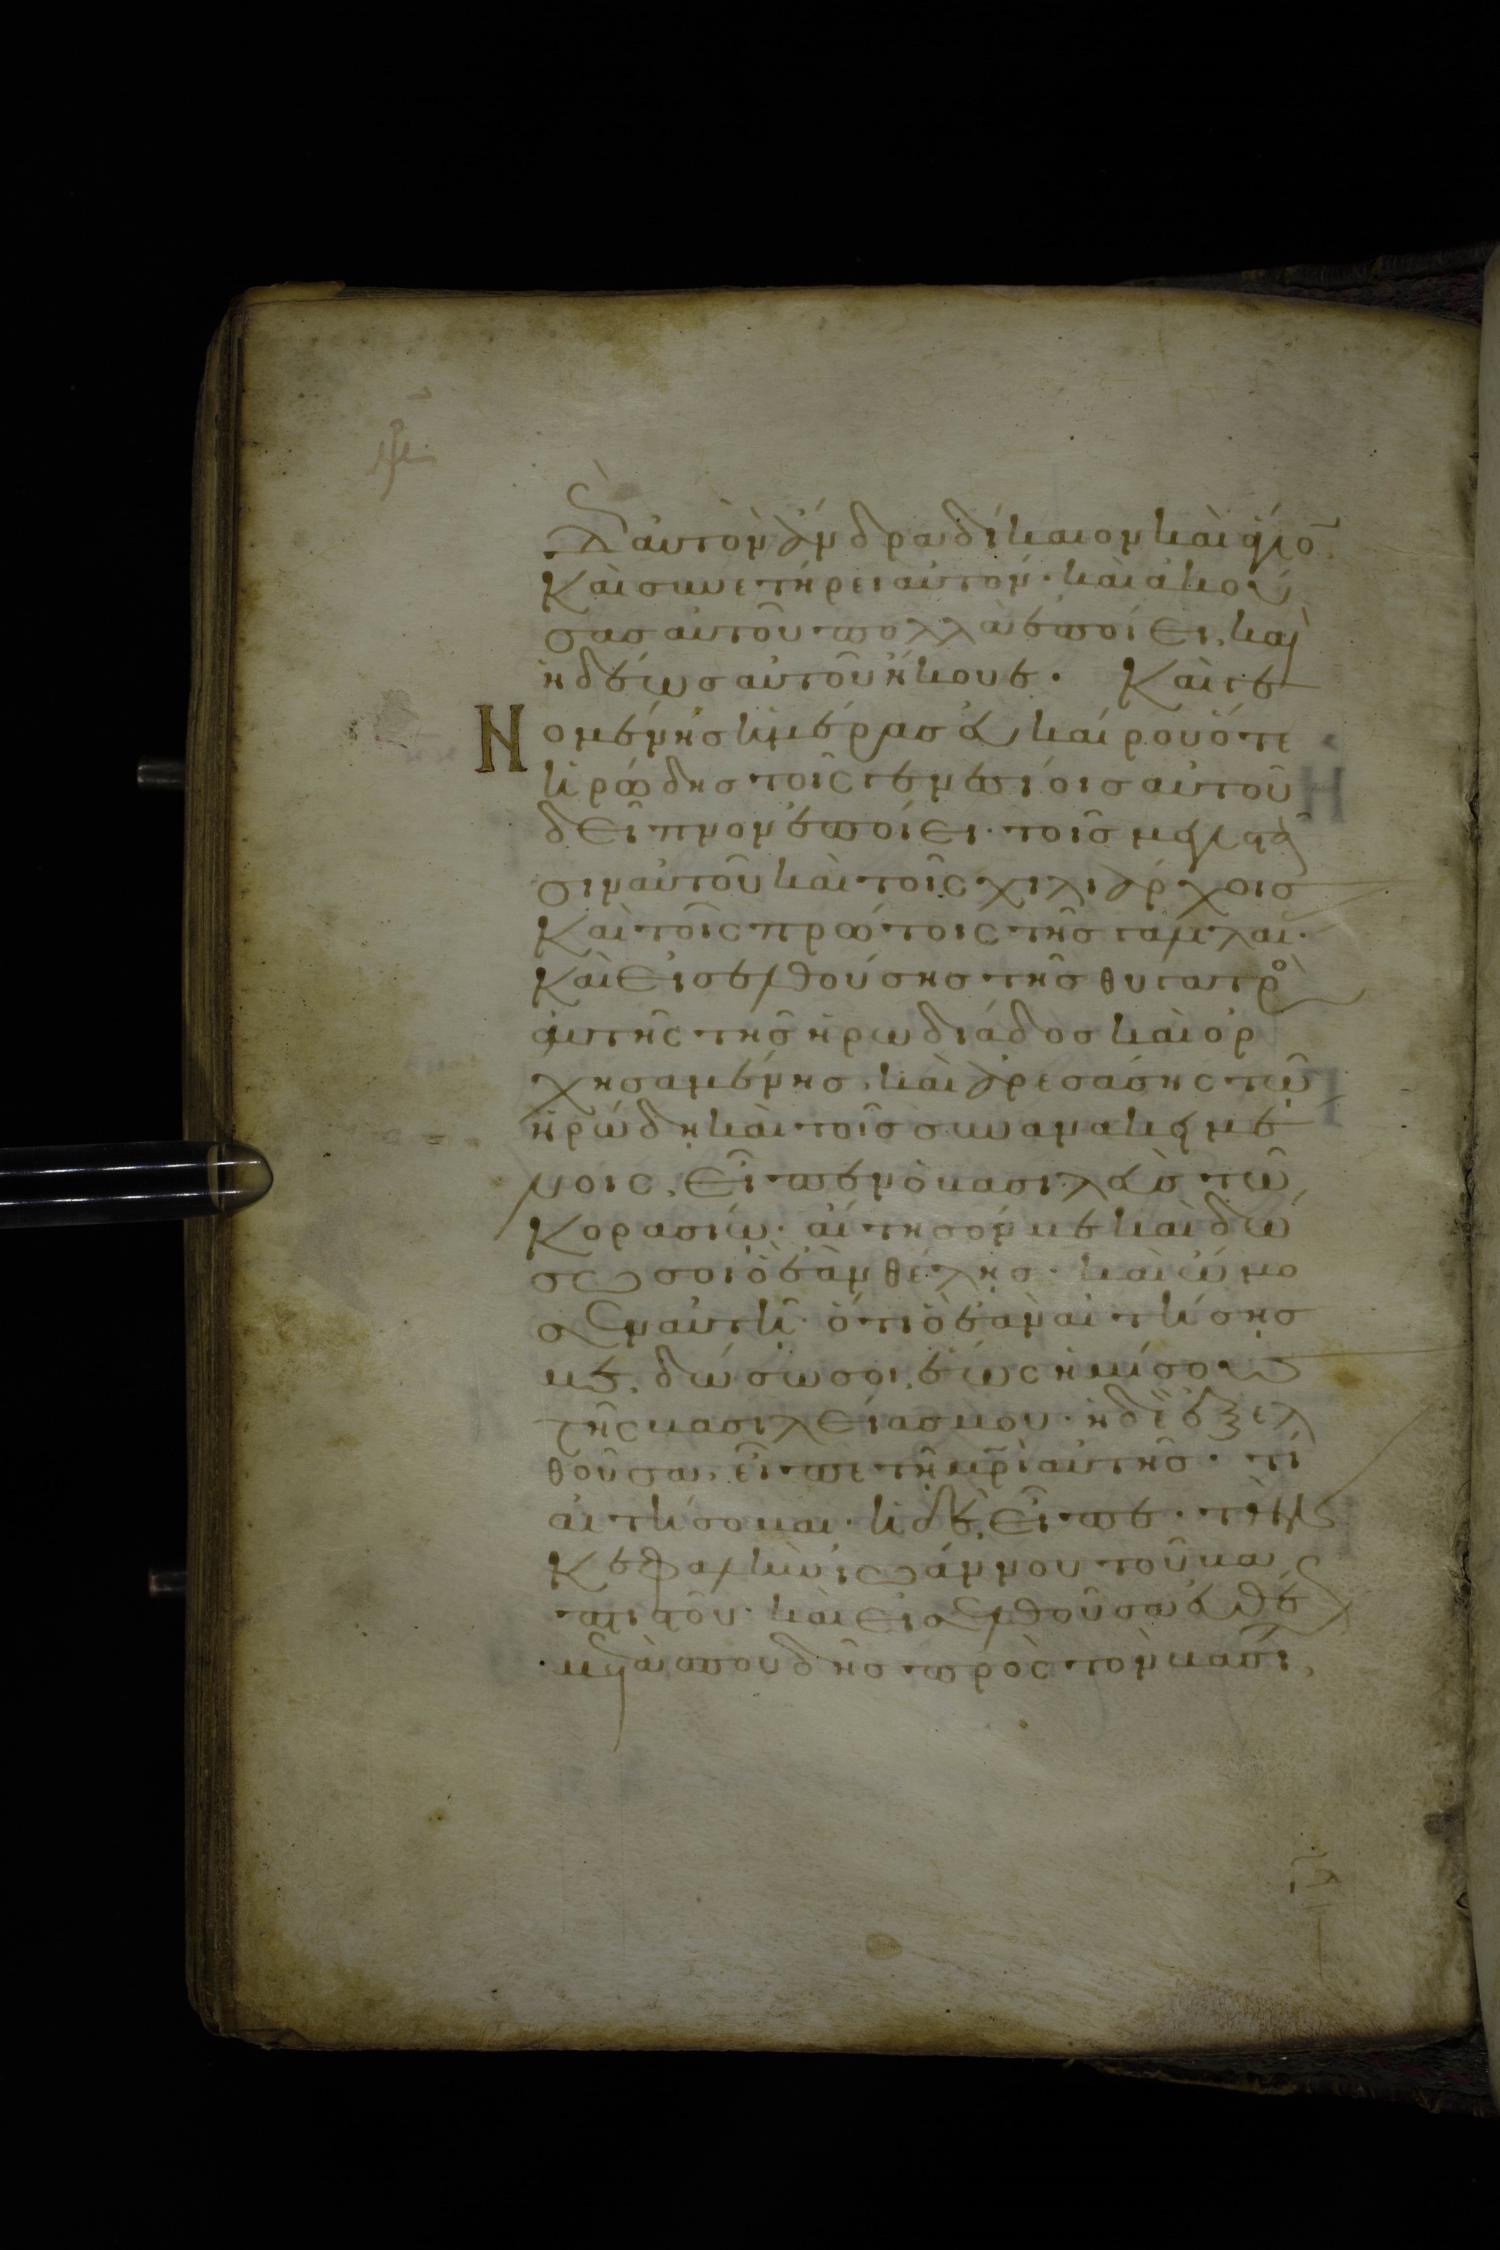 αὐτὸν ἄνδρα δίκαιον καὶ ἅγιο̄
Καὶ συνετήρει αὐτόν· καὶ ἀκού
σας αὐτοῦ πολλὰ ἐποίει, καὶ
ἡδέως αὐτοῦ ἤκουε· Καὶ γε
Νομένης ἡμέρας εὐκαίρου ὅτε
ἡρώδης τοῖς γενεσίοις αὐτοῦ
δεῖπνον ἐποίει· τοῖς μεγιστᾶ
σιν αὐτοῦ καὶ τοῖς χιλιάρχοις
Καὶ τοῖς πρώτοις τῆς γαλιλαί·
Καὶ εἰσελθούσης τῆς θυγατρὸ
αὐτῆς τῆς ἡρωδιάδος καὶ ὀρ
χησαμένης, καὶ ἀρεσάσης τῷ
ἡρώδῃ καὶ τοῖς συνανακειμέ
νοις, εἶπεν ὁ βασιλεὺς τῷ
Κορασίῳ· αἴτησόν με καὶ δώ
σω σοι ὃ ἐὰν θέλῃς· καὶ ὤμο
σεν αὐτῇ· ὅτι ὃ ἐὰν αἰτήσῃς
με, δώσω σοι, ἕως ἡμίσους
τῆς βασιλείας μου· ἡ δὲ ἐξελ
θοῦσα, εἶπε τῇ μρ̄ὶ αὐτῆς· τί
αἰτήσομαι· ἡ δὲ, εἶπε· τὴν
Κεφαλὴν ἰωάννου τοῦ βα
πτιστοῦ· καὶ εἰσελθοῦσα εὐθέ
μετὰ σπουδῆς πρὸς τὸν βασι,